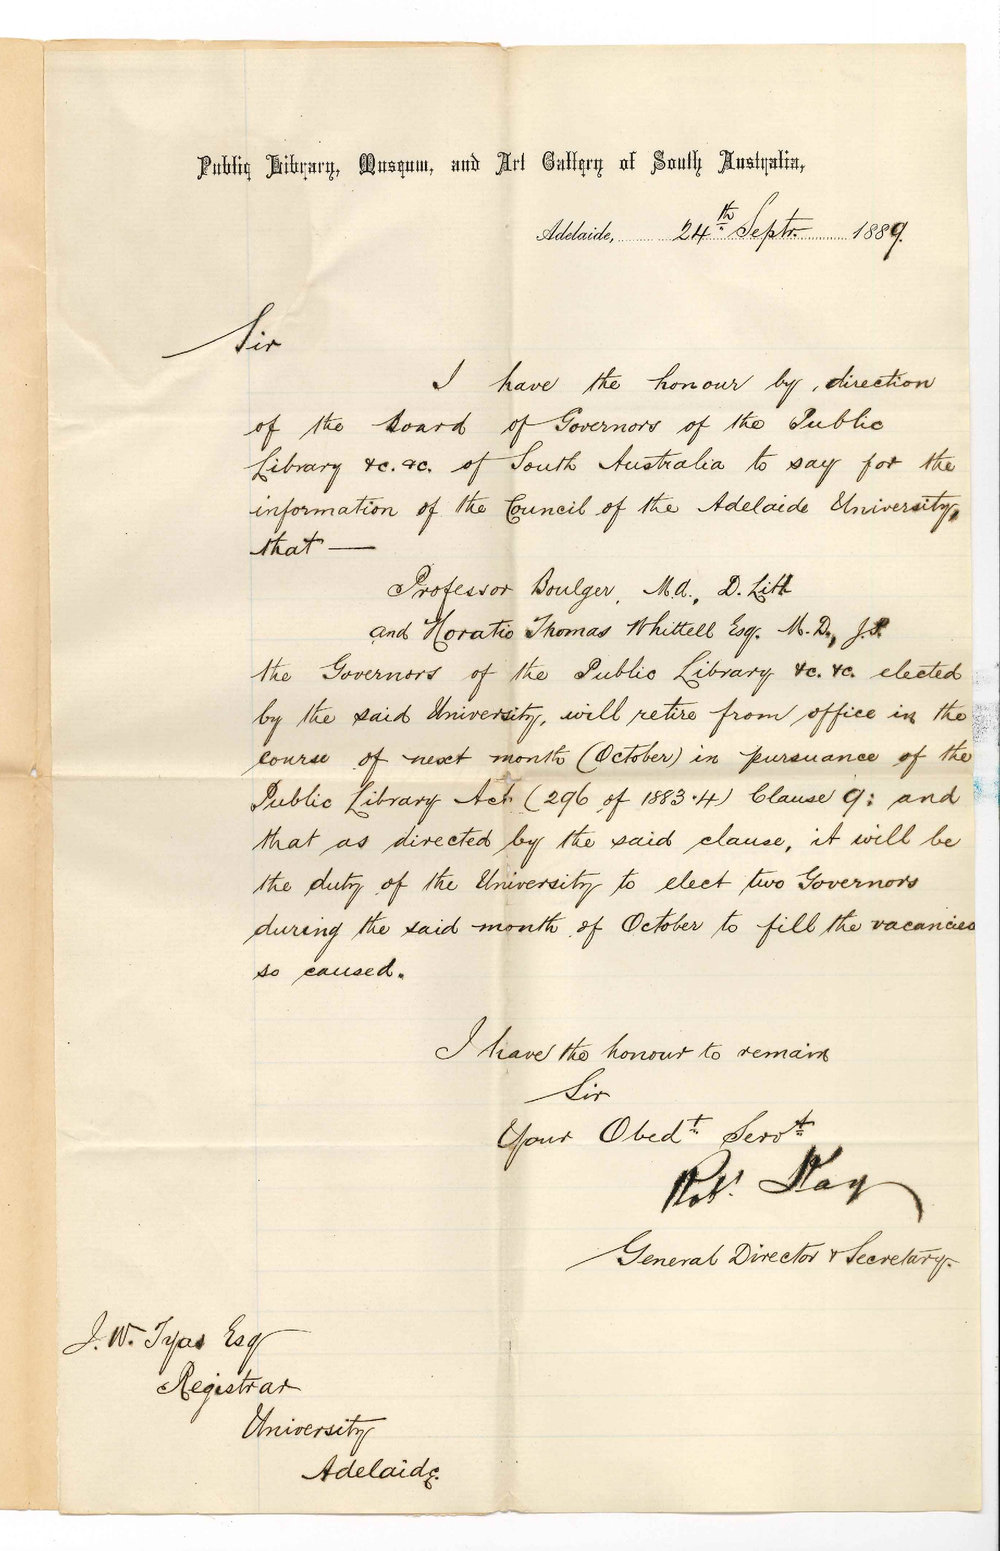 Public Library, Museum, and Art Gallery of South Australia,
Adelaide, 24th Septr. 1889.
Sir
I have the honour by direction
of the Board of Governors of the Public
Library &c. &c. of South Australia to say for the
information of the Council of the Adelaide University,
that —
Professor Boulger, M.A., D. Litt
and Horatio Thomas Whittell Esq. M.D., J.P.
the Governors of the Public Library &c. &c. elected
by the said University, will retire from office in the
course of next month (October) in pursuance of the
Public Library Act (296 of 1883.4) Clause 9: and
that as directed by the said clause, it will be
the duty of the University to elect two Governors
during the said month of October to fill the vacancies
so caused.
I have the honour to remain
Sir
Your Obedt. Servt.
Robt. Kay
General Director & Secretary.
J. W. Tyas Esq
Registrar
University
Adelaide.